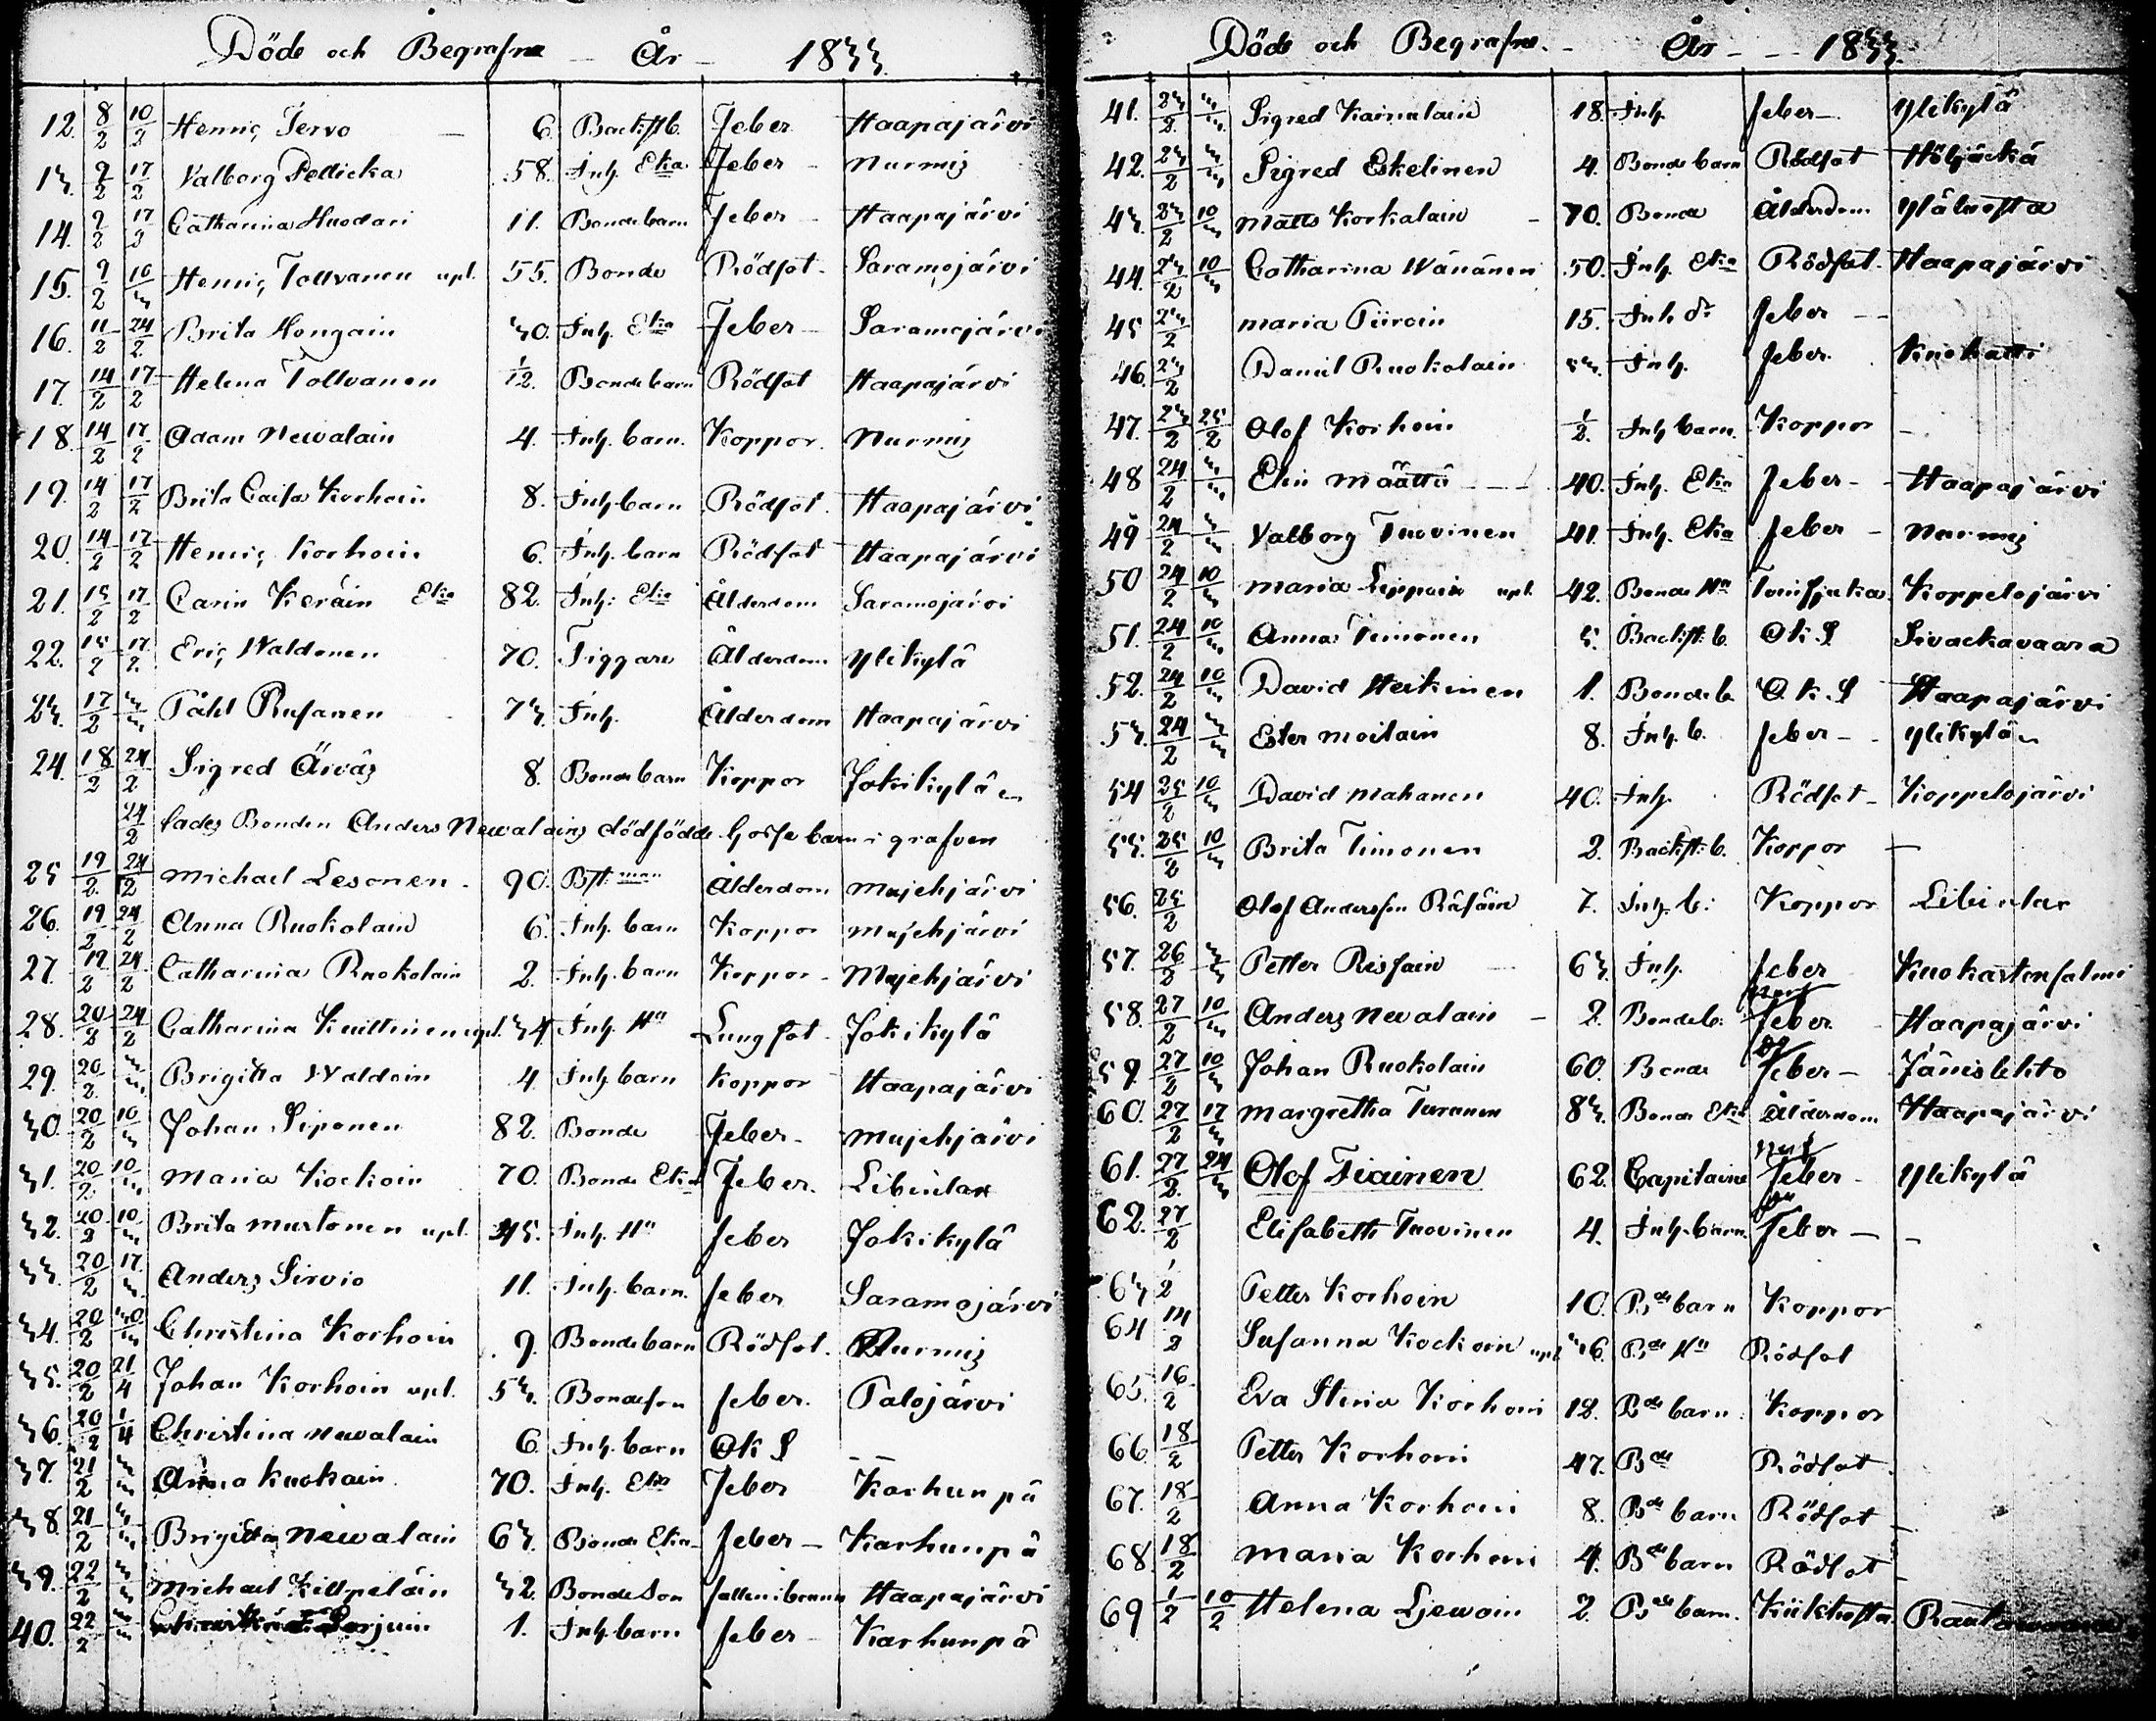 Döde och Begrafne - År - 1833.
12. 8/2 10/2 Henric Jervo - 6. Backst b. Feber Haapajärvi
13. 9/2 17/2 Valborg Pellicka 58. Inh. Eka Feber - Nurmis
14. 9/2 17/2 Catharina Huodari 11. Bondebarn Feber - Haapajärvi
15. 9/2 10/3 Henric Tollvanen upl. 55. Bonde Rödsot - Saramojärvi
16. 11/2 24/2 Brita Hongain 30. Inh. Eka Feber - Saramojärvi
17. 14/2 17/2 Helena Tollvanen 1/12. Bondebarn Rödsot Haapajärvi
18. 14/2 17/2 Adam Newalain 4. Inh. barn. Koppor. Nurmis
19. 14/2 17/2 Brita Caisa Korhoin 8. Inh barn Rödsot. Haapajärvi
20. 14/2 17/2 Henric Korhoin 6. Inh. barn Rödsot Haapajärvi
21. 15/2 17/2 Carin Keräin Eka 82. Inh: Eka Ålderdom Saramojärvi
22. 15/2 17/2 Eric Waldonen 70. Tiggare Ålderdom Ylikylä
23. 17/2 3/3 Påhl Rusanen 73. Inh. Ålderdom Haapajärvi
24. 18/2 24/2 Sigred Äiväs 8. Bonde barn Koppor Jokikylä
24/2 lades Bonden Anders Newalains dödfödde Gosse barn i grafven
25 19/2 24/2 Michael Lesonen. 90. Bst. man Ålderdom Mujehjärvi
26. 19/2 24/2 Anna Ruokolain 6. Inh. barn Koppor Mujehjärvi
27. 19/2 24/2 Catharina Ruokolain 2. Inh. barn Koppor - Mujehjärvi
28. 20/2 24/2 Catharina Kuittinen upl. 34. Inh. Hu Lungsot. Jokikylä
29. 20/2 3/3 Brigitta Waldoin 4. Inh barn Koppor Haapajärvi
30. 20/2 10/3 Johan Siponen 82. Bonde Feber - Mujehjärvi
31. 20/2 10/3 Maria Kockoin 70. Bonde Eka Feber. Libinlax
32. 20/2 10/3 Brita Mustonen upl. 45. Inh. Hu Feber Jokikylä
33. 20/2 17/3 Anders Sirvio 11. Inh. barn. Feber Saramojärvi
34. 20/2 30/3 Christina Korhoin 9. Bondebarn Rödsot. Nurmis
35. 20/2 21/4 Johan Korhoin upl. 53. Bondeson Feber. Palojärvi
36. 20/2 1/4 Christina Newalain 6. Inh. barn Ok S --
37. 21/2 3/3 Anna Kuokain 70. Inh. Eka Feber Karhunpä
38. 21/2 3/3 Brigitta Newalain 63. Bonde Eka - Feber - Karhunpä
39. 22/2 3/3 Michael Kilpeläin 32. Bonde Son fallen i brunn Haapajärvi
40. 22/2 3/3 Sorjuin 1. Inh barn Feber - Karhunpä
Döde och Begrafne. - År - - 1833.
41. 23/2 3/3 Sigred Kainulain 18. Inh. Feber - Ylikylä
42. 23/2 3/3 Sigred Eskelinen 4. Bonde barn Rödsot Höljäckä
43. 23/2 10/3 Matts Korkalain - 70. Bonde Ålderdom
44. 23/2 10/3 Catharina Wänänen 50. Inh. Eka Rödsot. Haapajärvi
45 23/2 Maria Piiroin 15. Inh. dr Feber --
46. 23/2 Daniel Ruokolain 53. Inh. Feber. Kuokatti
47. 23/2 25/2 Olof Korhoin 1/2. Inh barn. Koppor -
48 24/2 3/3 Elin Määttä - - 40. Inh. Eka Feber - Haapajärvi
49 24/2 3/3 Valborg Tuovinen 41. Inh. Eka Feber - Nurmis
50 24/2 10/3 Maria Leppäin upl. 42. Bonde Hu Koppelojärvi
51. 24/2 10/3 Anna Timonen 5. Backst: b. Ok S Sivackavaara
52. 24/2 10/3 David Heikinen 1. Bonde b. O. k. S Haapajärvi
53. 24/2 3/3 Ester Moilain 8. Inh. b. Feber - - Ylikylä
54 25/2 10/3 David Mahanen 40. Inh. Rödsot - Koppelojärvi
55. 25/2 10/3 Brita Timonen 2. Backst: b. Koppor -
56. 25/2 Olof Andersson Räsäin 7. Inh. b: Koppor Libinlax
57. 26/2 3/3 Petter Reissain - 63. Inh. Feber Kuokastensalmi
58. 27/2 10/3 Anders Newalain - 2. Bonde b. Feber. Haapajärvi
59. 27/2 10/3 Johan Ruokolain 60. Bonde Feber - Jänislehto
60. 27/2 17/3 Margretha Turunen 83. Bonde Eka Ålderdom. Haapajärvi
61. 27/2 24/3 Olof Tiainen 62. Capitaine Feber - Ylikylä
62. 27/2 Elisabeth Tuovinen 4. Inh. barn. Feber - -
63 1/2 Petter Korhoin 10. Bde barn Koppor
64 14/2 Susanna Kockoin upl 36. Bde Hu Rödsot
65. 16/2 Eva Stina Korhoni 12. Bde barn. Koppor
66. 18/2 Petter Korhoni 47. Bde Rödsot.
67. 18/2 Anna Korhoni 8. Bde barn Rödsot -
68. 18/2 Maria Korhoni 4. Bde barn Rödsot -
69 1/2 10/2 Helena Ljewoin 2. Bde barn. Kikhosta. Rautawaara